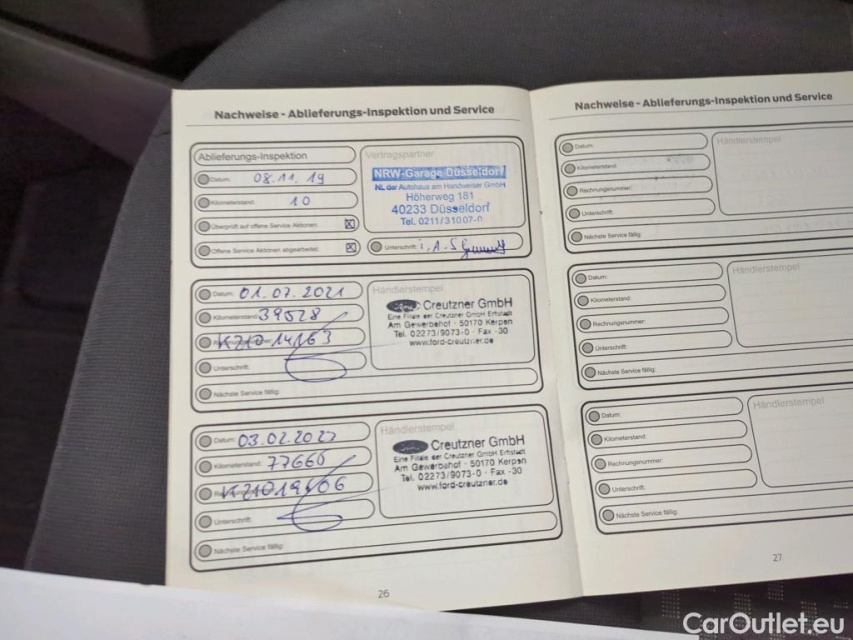 Nachweise - Ablieferungs-Inspektion und Service
Ablieferungs-Inspektion
Datum: 08.11.19
Kilometerstand: 10
Überprüft auf offene Service Aktionen: ☒
Offene Service Aktionen abgearbeitet: ☒
Vertragspartner
NRW-Garage Düsseldorf
NL der Autohaus am Handweiser GmbH
Höherweg 181
40233 Düsseldorf
Tel. 0211/31007-0
Unterschrift: i.A.S
Datum: 01.07.2021
Kilometerstand: 39528
Unterschrift:
Nächste Service fällig:
Händlerstempel
Ford
Creutzner GmbH
Eine Filiale der Creutzner GmbH Erftstadt
Am Gewerbehof · 50170 Kerpen
Tel. 02273/9073-0 · Fax -30
www.ford-creutzner.de
Datum: 03.02.2022
Kilometerstand: 77666
Unterschrift:
Nächste Service fällig:
Händlerstempel
Creutzner GmbH
Eine Filiale der Creutzner GmbH Erftstadt
Am Gewerbehof · 50170 Kerpen
Tel. 02273/9073-0 · Fax -30
www.ford-creutzner.de
26
Nachweise - Ablieferungs-Inspektion und Service
Datum:
Kilometerstand:
Rechnungsnummer:
Unterschrift:
Nächste Service fällig:
Händlerstempel
Datum:
Kilometerstand:
Rechnungsnummer:
Unterschrift:
Nächste Service fällig:
Händlerstempel
Datum:
Kilometerstand:
Rechnungsnummer:
Unterschrift:
Nächste Service fällig:
Händlerstempel
27
CarOutlet.eu